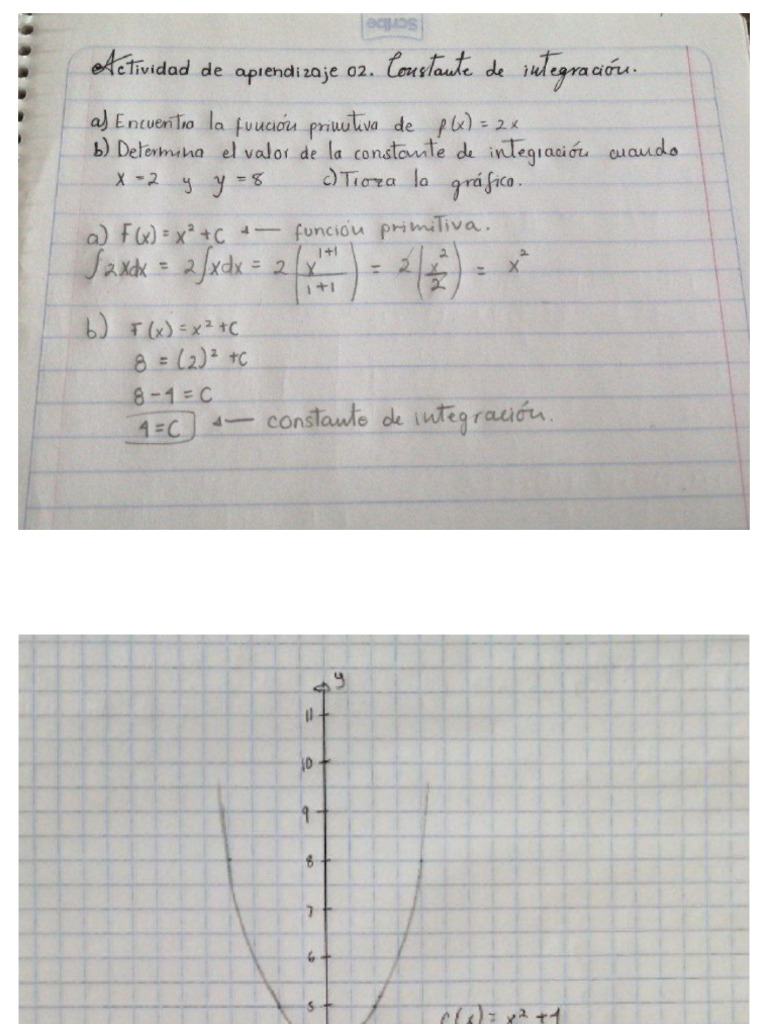 Scribe
Actividad de aprendizaje 02. Constante de integración.
a) Encuentra la función primitiva de f(x) = 2x
b) Determina el valor de la constante de integración cuando
x = 2 y y = 8 c) Traza la gráfica.
a) F(x) = x² + C ← función primitiva.
∫2xdx = 2∫xdx = 2(x^(1+1)/(1+1)) = 2(x²/2) = x²
b) F(x) = x² + C
8 = (2)² + C
8 - 4 = C
4 = C ← constante de integración.
y
11
10
9
8
7
6
5
f(x) = x² + 4